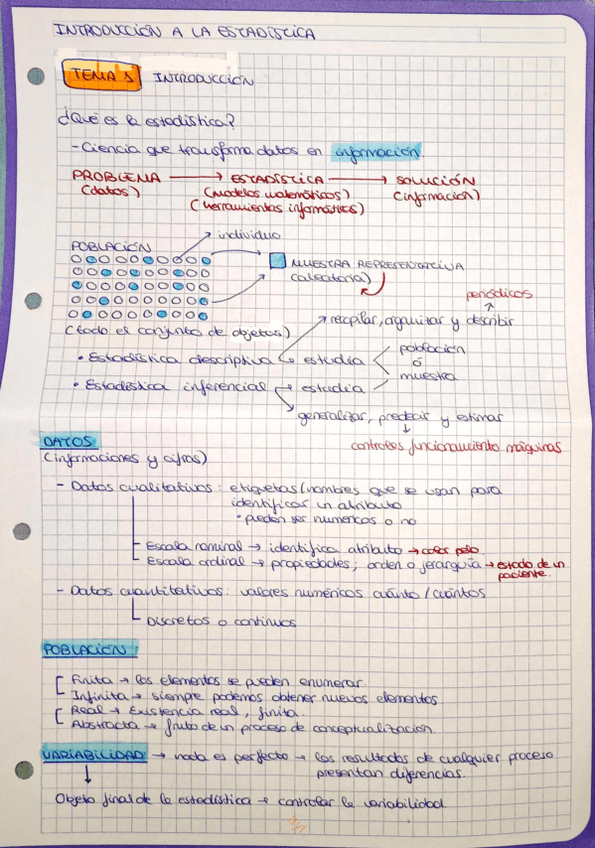 INTRODUCCIÓN A LA ESTADÍSTICA
TEMA 1 INTRODUCCIÓN
¿Qué es la estadística?
- Ciencia que transforma datos en información.
PROBLEMA → ESTADÍSTICA → SOLUCIÓN
(datos) (modelos matemáticos) (información)
(herramientas informáticas)
individuo
POBLACIÓN
MUESTRA REPRESENTATIVA
(aleatoria)
periódicos
recopilar, organizar y describir
(todo el conjunto de objetos)
población
• Estadística descriptiva → estudia
ó
• Estadística inferencial → estudia
muestra
generalizar, predecir y estimar
controles funcionamiento máquinas
DATOS
(informaciones y cifras)
- Datos cualitativos: etiquetas/nombres que se usan para
identificar un atributo
• pueden ser numéricos o no
Escala nominal → identifica atributo → color pelo.
Escala ordinal → propiedades; orden o jerarquía → estado de un
paciente.
- Datos cuantitativos: valores numéricos cuánto/cuántos
Discretos o continuos
POBLACIÓN:
Finita → los elementos se pueden enumerar.
Infinita → siempre podemos obtener nuevos elementos
Real → Existencia real, finita.
Abstracta → fruto de un proceso de conceptualización.
VARIABILIDAD → nada es perfecto → los resultados de cualquier proceso
presentan diferencias.
Objeto final de la estadística → controlar la variabilidad